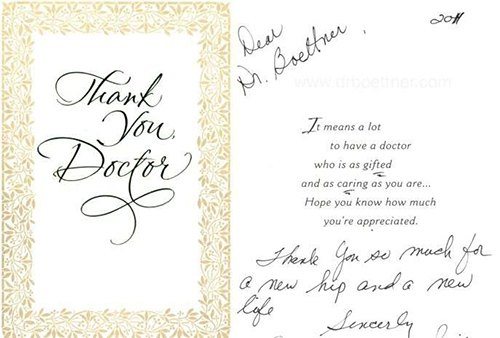 Thank
You,
Doctor
2011
Dear
Dr. Boettner,
www.drboettner.com
It means a lot
to have a doctor
who is as gifted
and as caring as you are...
Hope you know how much
you're appreciated.
Thank You so much for
a new hip and a new
life
Sincerely